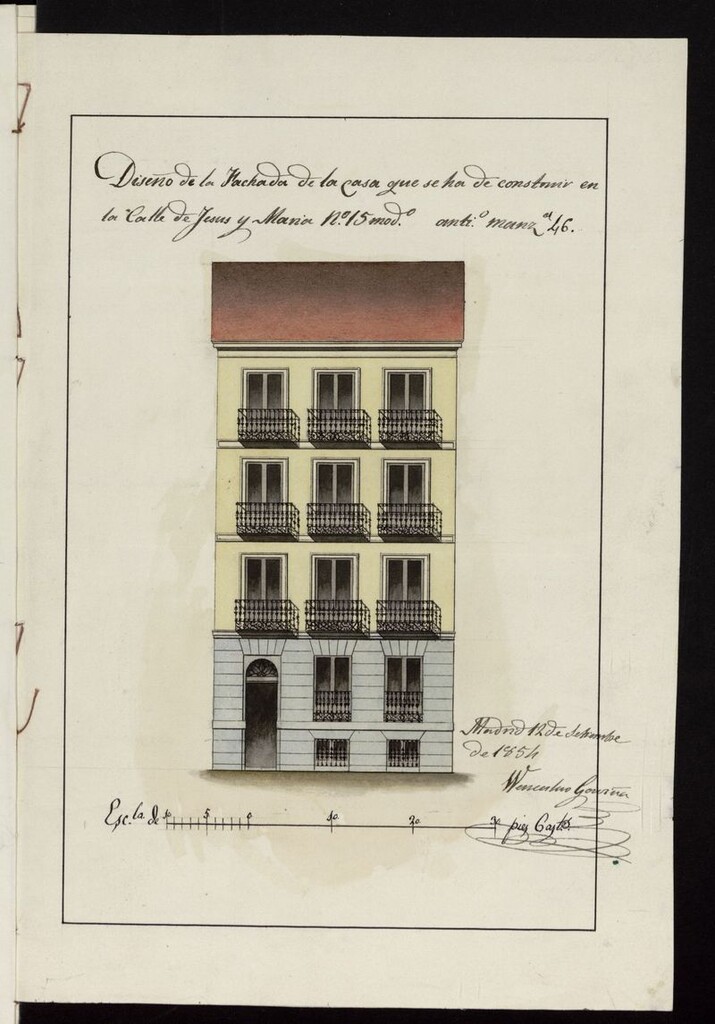 Diseño de la Fachada de la casa que se ha de construir en
la Calle de Jesus y Maria Nº 15 mod.º anti.º manz.ª 46.
Madrid 12 de Setiembre
de 1854
Wenceslao Gaviña
Esc.la de 10 5 0 10 20 30 pies Cast.s